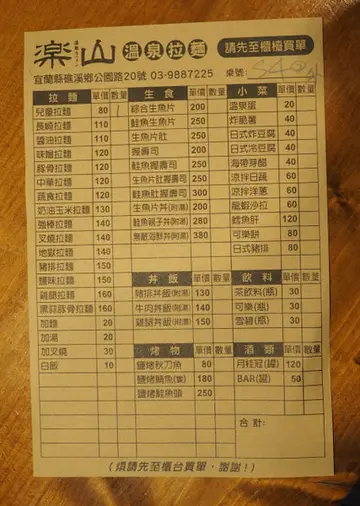 楽山 溫泉拉麵 請先至櫃檯買單
宜蘭縣礁溪鄉公園路20號 03-9887225 桌號:
拉麵 單價 數量 生食 單價 數量 小菜 單價 數量
兒童拉麵 80 / 綜合生魚片 200 溫泉蛋 20
長崎拉麵 110 鮭魚生魚片 200 炸脆薯 40
醬油拉麵 110 生魚片肚 280 日式炸豆腐 40
味噌拉麵 120 握壽司 200 日式冷豆腐 40
豚骨拉麵 120 鮭魚握壽司 250 海帶芽醋 40
中華拉麵 120 生魚片肚握壽司 250 涼拌日蔬 60
蔬食拉麵 120 鮭魚肚握壽司 300 涼拌洋蔥 60
奶油玉米拉麵 130 生魚片丼(附湯) 200 龍蝦沙拉 60
強棒拉麵 140 鮭魚親子丼(附湯) 280 鱈魚肝 120
叉燒拉麵 140 無敵海鮮丼(附湯) 380 可樂餅 80
地獄拉麵 140 日式豬排 80
豬排拉麵 150 丼飯 單價 數量 飲料 單價 數量
鹽味拉麵 150 豬排丼飯(附湯) 130 茶飲料(瓶) 30
雞腿拉麵 160 牛肉丼飯(附湯) 140 可樂(瓶) 30
黑蒜豚骨拉麵 160 雞腿丼飯(附湯) 150 雪碧(瓶) 30
加麵 20
加湯 20 烤物 單價 數量 酒類 單價 數量
加叉燒 30 鹽烤秋刀魚 80 月桂冠(罐) 120
白飯 10 鹽烤鯖魚(隻) 180 BAR(罐) 50
鹽烤鮭魚頭 250
合計:
(煩請先至櫃台買單,謝謝!)